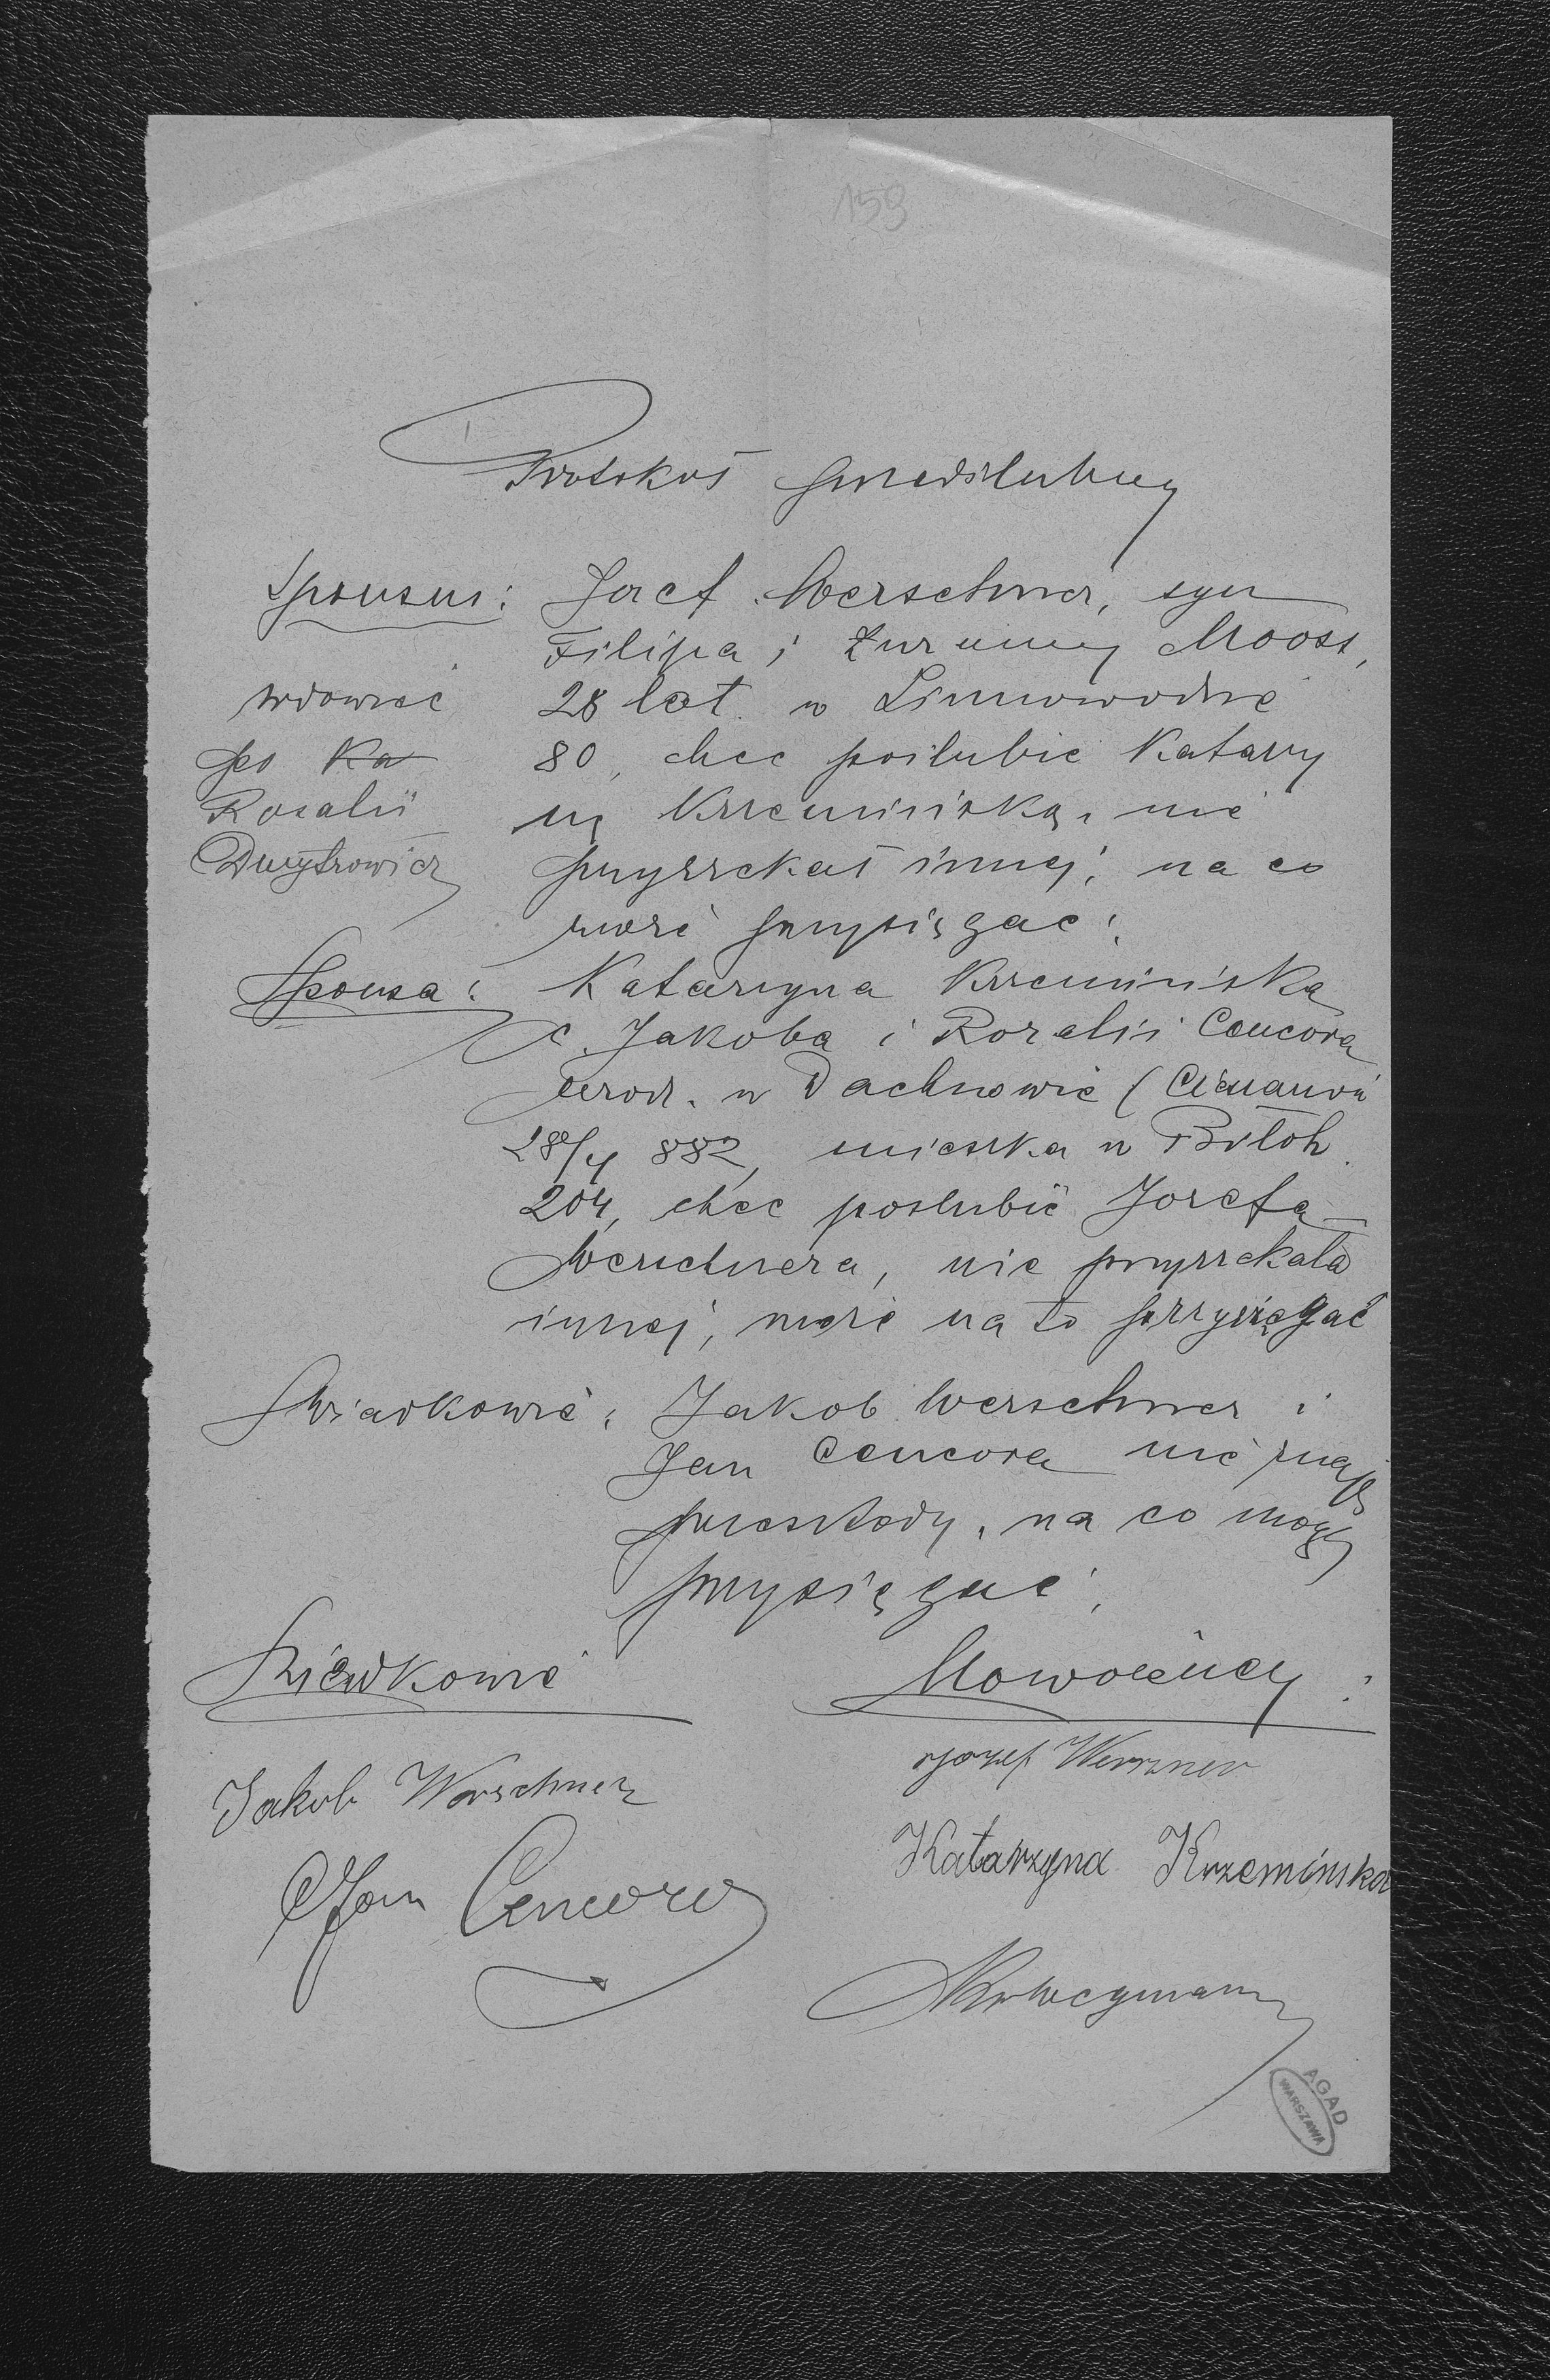 159
Protokół przedślubny
Sponsus: Józef Werschner, syn
Filipa i Zuzanny Mooss,
wdowiec 28 lat w Zimnowodzie
po Ka 80, chce poślubić Katarzy
Rozalii nę Krzemińską, nie
Dmytrowicz przyrzekał innej, na co
może przysięgać.
Sponsa: Katarzyna Krzemińska
c. Jakoba i Rozalii Cencora
urod. w Dachnowie (Cieszanów
28/4 882, mieszka w
204, chce poślubić Józefa
Werschnera, nie przyrzekała
innej, może na to przysięgać
Świadkowie: Jakob Werschner i
Jan Cencora nie znają
przeszkody, na co mogą
przysięgać.
Świadkowie Nowożeńcy:
Józef Werszner
Jakob Werschner
Katarzyna Krzemińska
Jan Cencora
AGAD
WARSZAWA